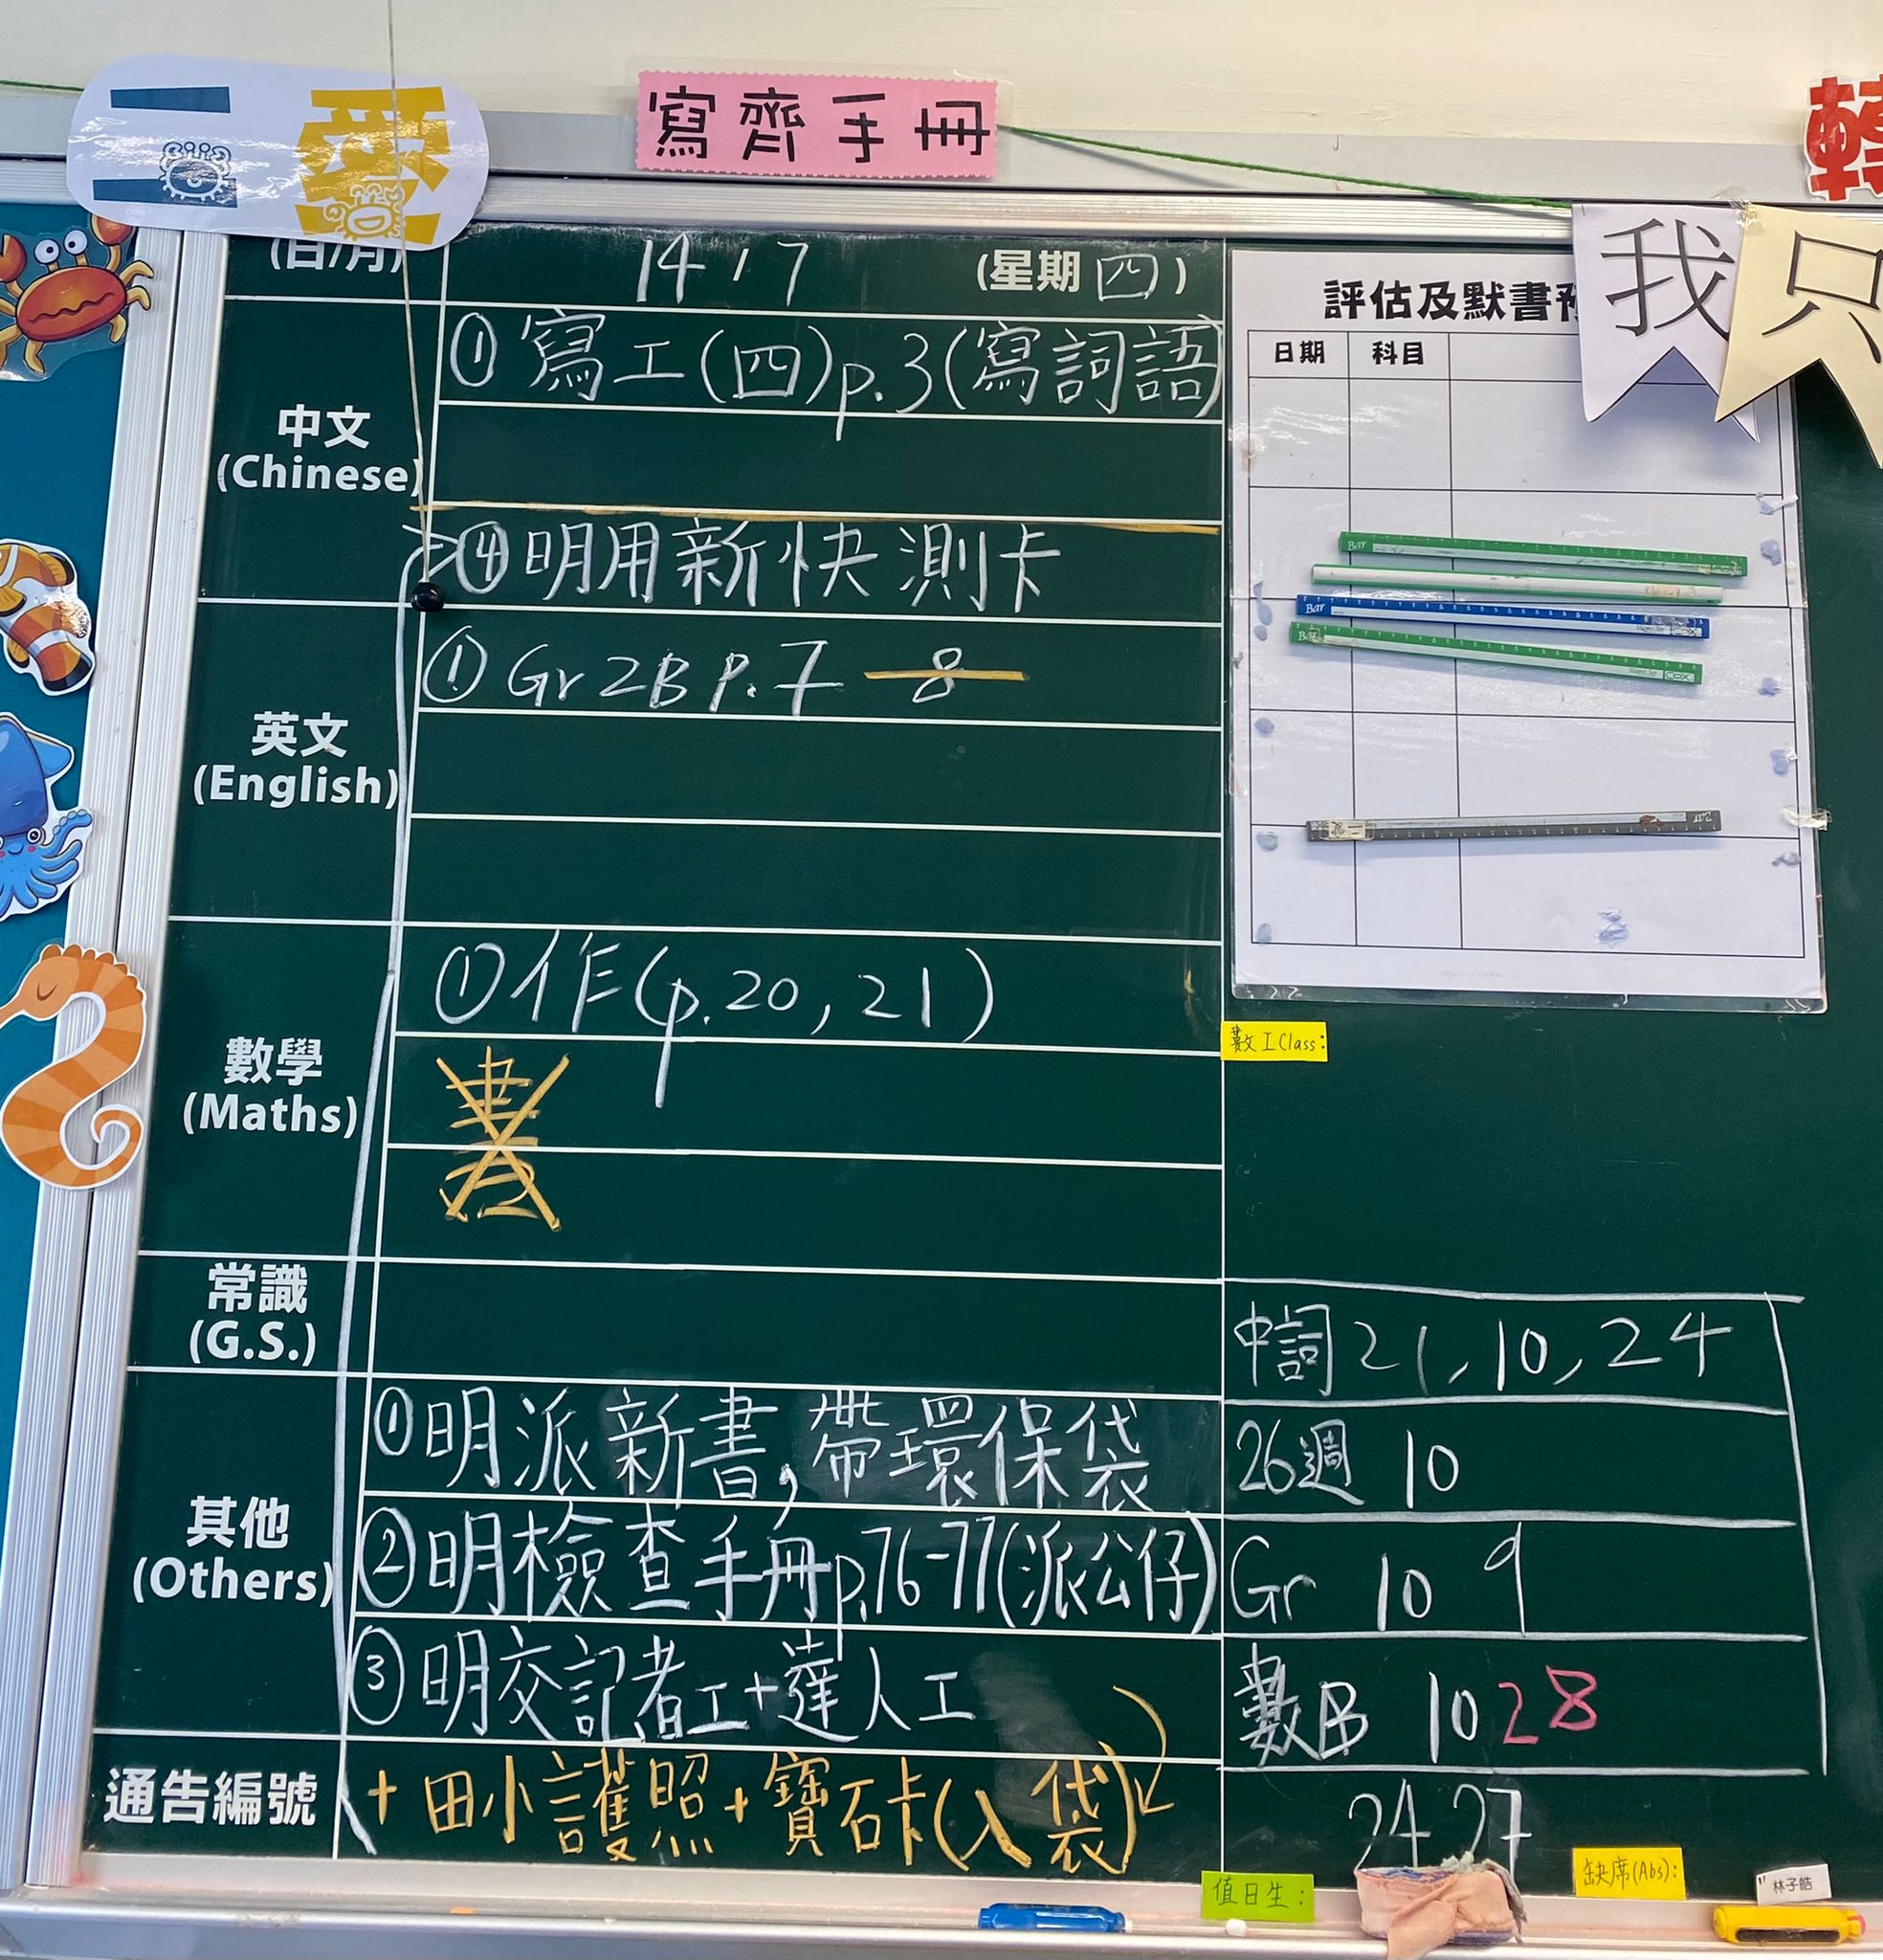 二愛
寫齊手冊
轉
我只
(日/月)
14 / 7
(星期 四 )
中文
(Chinese)
① 寫工(四)p.3(寫詞語)
④明用新快測卡
英文
(English)
① Gr 2B P.7 8
數學
(Maths)
①作(p.20, 21)
書
常識
(G.S.)
其他
(Others)
①明派新書,帶環保袋
②明檢查手冊p.76-77(派公仔)
③明交記者工+達人工
通告編號
+田小護照+寶石卡(入袋)
評估及默書
日期 科目
數工Class:
中詞 21, 10, 24
26週 10
Gr 10 9
數B 10 28
24 27
值日生:
缺席(Abs):
林子皓